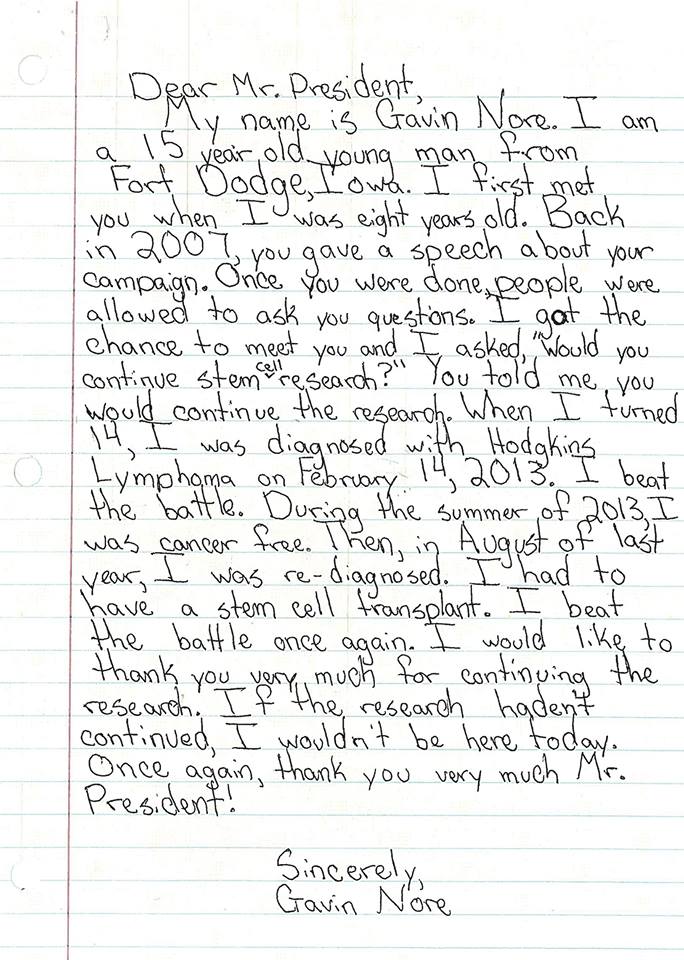 Dear Mr. President,
My name is Gavin Nore. I am
a 15 year old young man from
Fort Dodge, Iowa. I first met
you when I was eight years old. Back
in 2007, you gave a speech about your
campaign. Once you were done, people were
allowed to ask you questions. I got the
chance to meet you and I asked, "Would you
continue stem cell research?" You told me you
would continue the research. When I turned
14, I was diagnosed with Hodgkins
Lymphoma on February 14, 2013. I beat
the battle. During the summer of 2013, I
was cancer free. Then, in August of last
year, I was re-diagnosed. I had to
have a stem cell transplant. I beat
the battle once again. I would like to
thank you very much for continuing the
research. If the research haden't
continued, I wouldn't be here today.
Once again, thank you very much Mr.
President!
Sincerely,
Gavin Nore